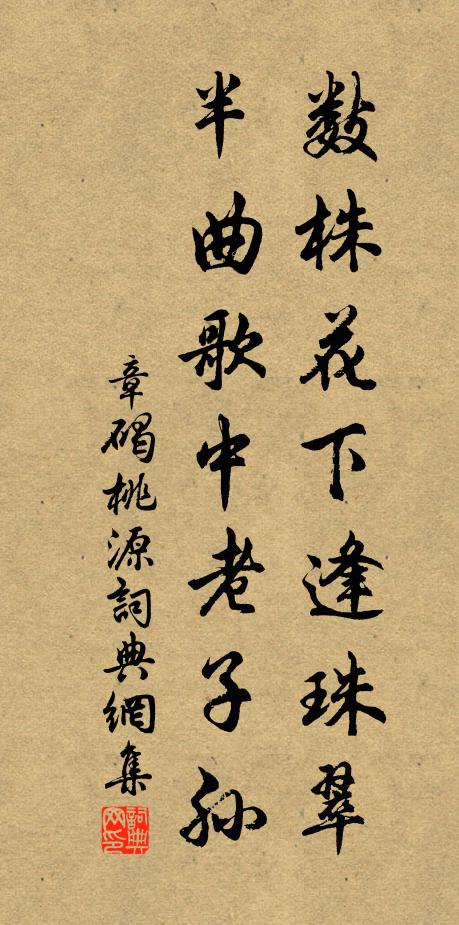 数株花下逢珠翠
半曲歌中老子孫
章碣桃源詞典網集
詞典網印